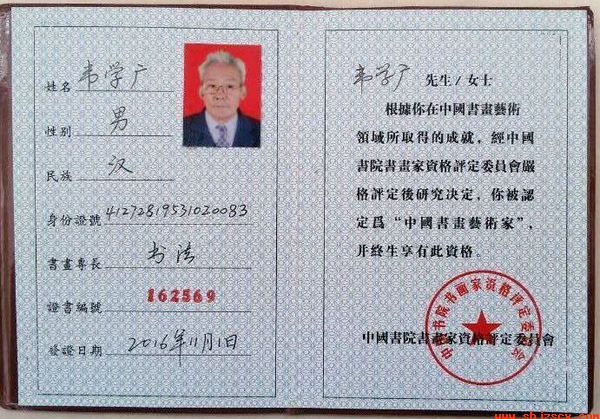 姓名 韦学广
性别 男
民族 汉
身份證號 41272819531020083
書畫專長 书法
證書編號 162569
發證日期 2016年11月1日
韦学广 先生/女士
根據你在中國書畫藝術
領域所取得的成就，經中國
書院書畫家資格評定委員會嚴
格評定後研究決定，你被認
定爲“中國書畫藝術家”，
并終生享有此資格。
中國書院書畫家資格評定委員會
中国书院书画家资格评定委员会